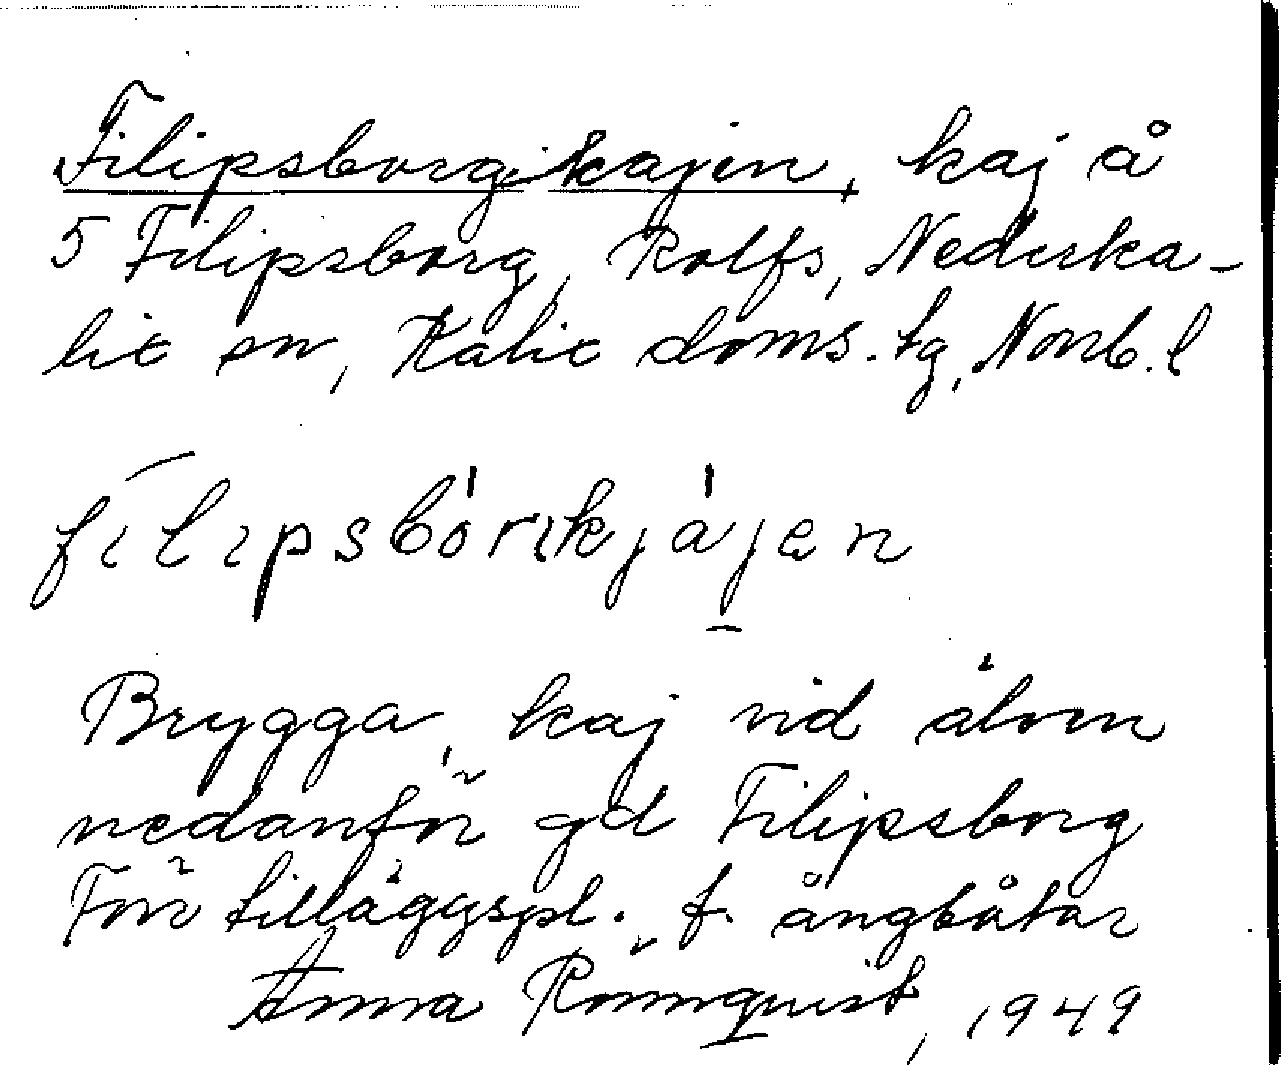 Filipsborgskajen, kaj å
5 Filipsborg, Rolfs, Nederka-
lix sn, Kalix doms. tg, Norrb. l
filipsbórikjàjen
Brygga, kaj vid älven
nedanför gd Filipsborg
Förr tilläggspl. f. ångbåtar
Anna Rönnqvist, 1949